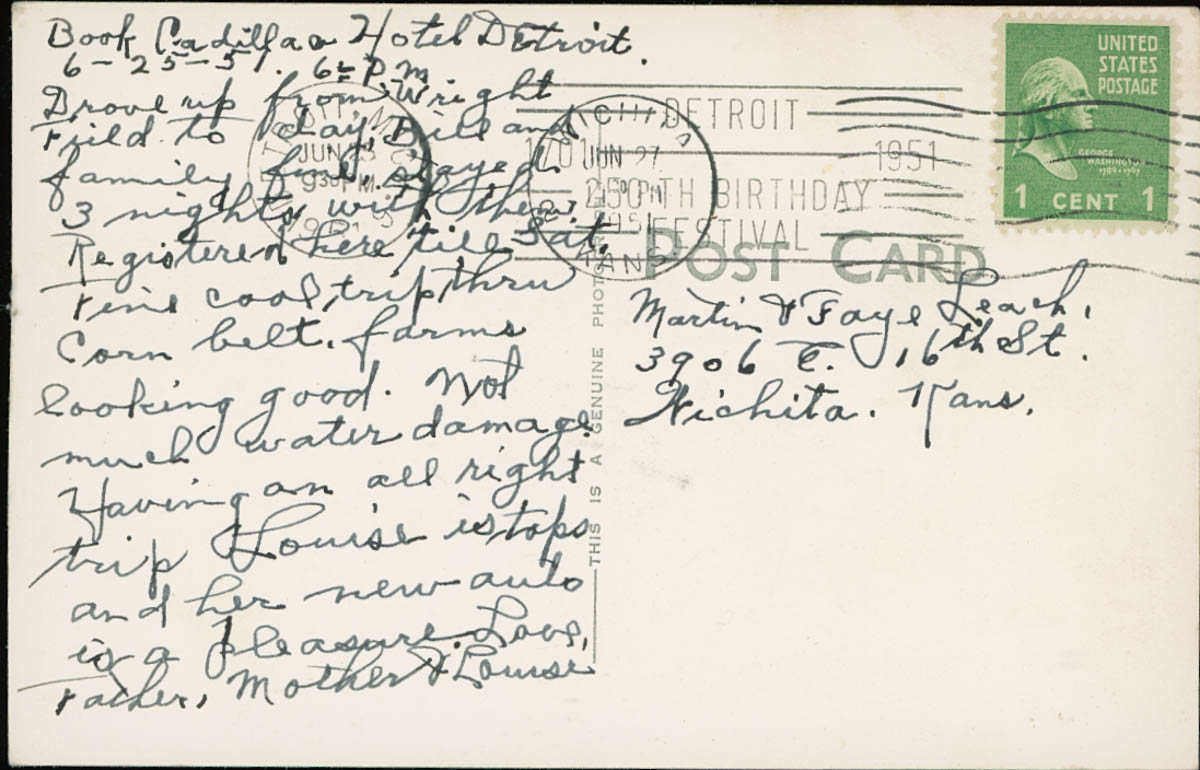 Book Cadillac Hotel Detroit.
6-25-51. 6 P.M
Drove up from Wright
Field to day, Bill and
family fine, stayed
3 nights with them
Registered here till Sat.
Fine cool, trip, thru
Corn belt. farms
looking good. Not
much water damage.
Having an all right
trip Louise is tops
and her new auto
is a pleasure. Love,
Father, Mother & Louise
THIS IS A GENUINE
DETROIT
1951
250TH BIRTHDAY
FESTIVAL
JUN
9 30 PM
WICHITA
JUN 27
KANS
UNITED
STATES
POSTAGE
GEORGE
WASHINGTON
1789-1797
1 CENT 1
POST CARD
Martin & Faye Leach,
3906 E. 16th St.
Wichita. Kans.